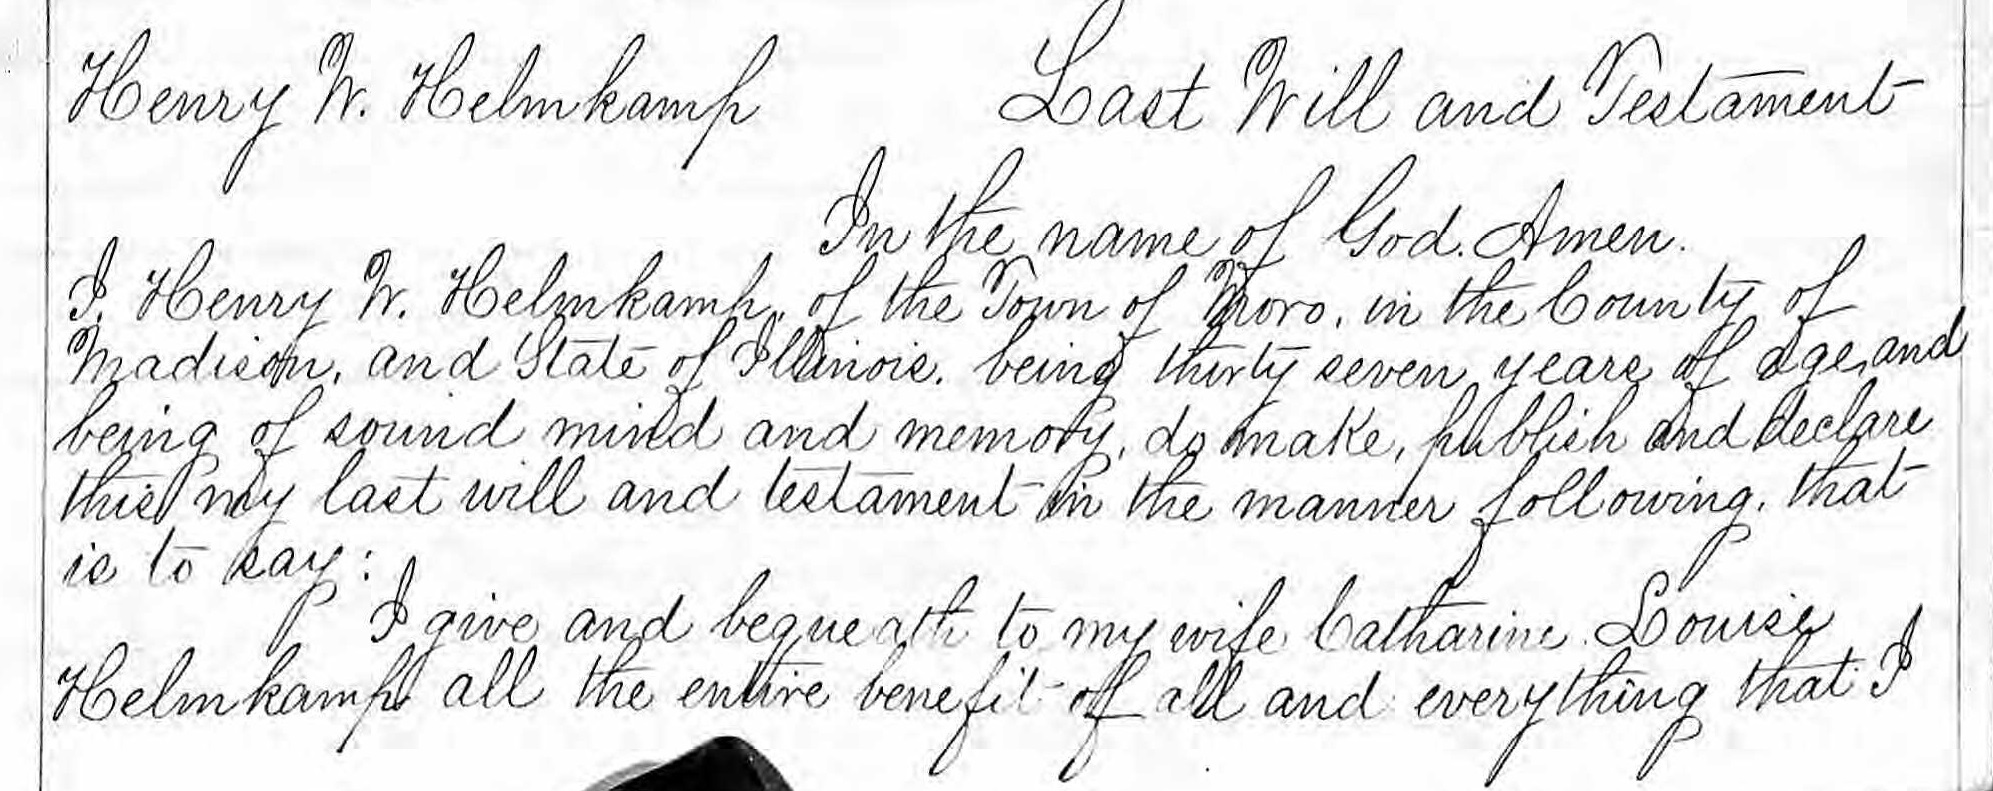 Henry W. Helmkamp Last Will and Testament
In the name of God. Amen.
I, Henry W. Helmkamp, of the Town of Moro, in the County of
Madison, and State of Illinois, being thirty seven years of age, and
being of sound mind and memory, do make, publish and declare
this my last will and testament in the manner following, that
is to say:
I give and bequeath to my wife Catharine Louise
Helmkamp all the entire benefit of all and everything that I